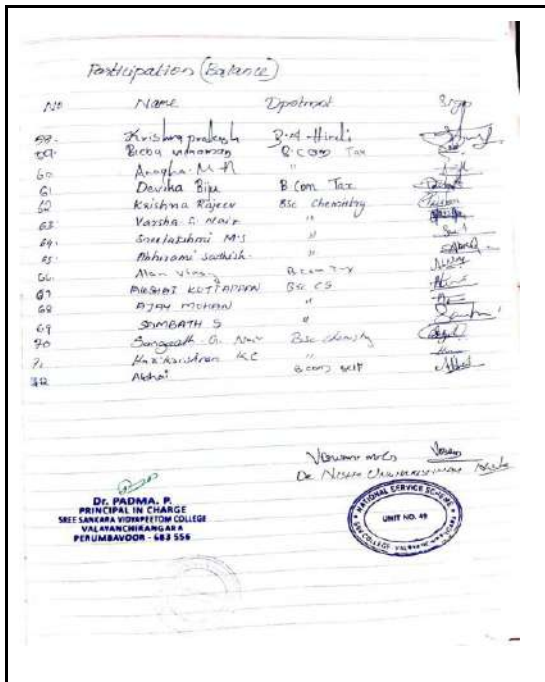 Participation (Balance)
No Name Dpotment Sign
58. Krishna prakash B.A-Hindi
59. B.Com Tax
60 Anagha. M "
61 Devika Biju B Com Tax
62 Krishna Rajeev BSc Chemistry
63. Varsha S. Nair "
64. Sreelakshmi M.S "
65. Abhirami Sathish. "
66. Alan B com Tax
67 AKSHAI KUTTAPPAN BSc CS
68 AJAY MOHAN "
69 SAMBATH S "
70 Sangeeth G. Nair BSc chemistry
71 Harikrishnan KC "
72 Abhai B com
Dr.
Dr. PADMA. P.
PRINCIPAL IN CHARGE
SREE SANKARA VIDYAPEETOM COLLEGE
VALAYANCHIRANGARA
PERUMBAVOOR - 683 556
NATIONAL SERVICE SCHEME
UNIT NO. 49
SSV COLLEGE VALAYANCHIRANGARA